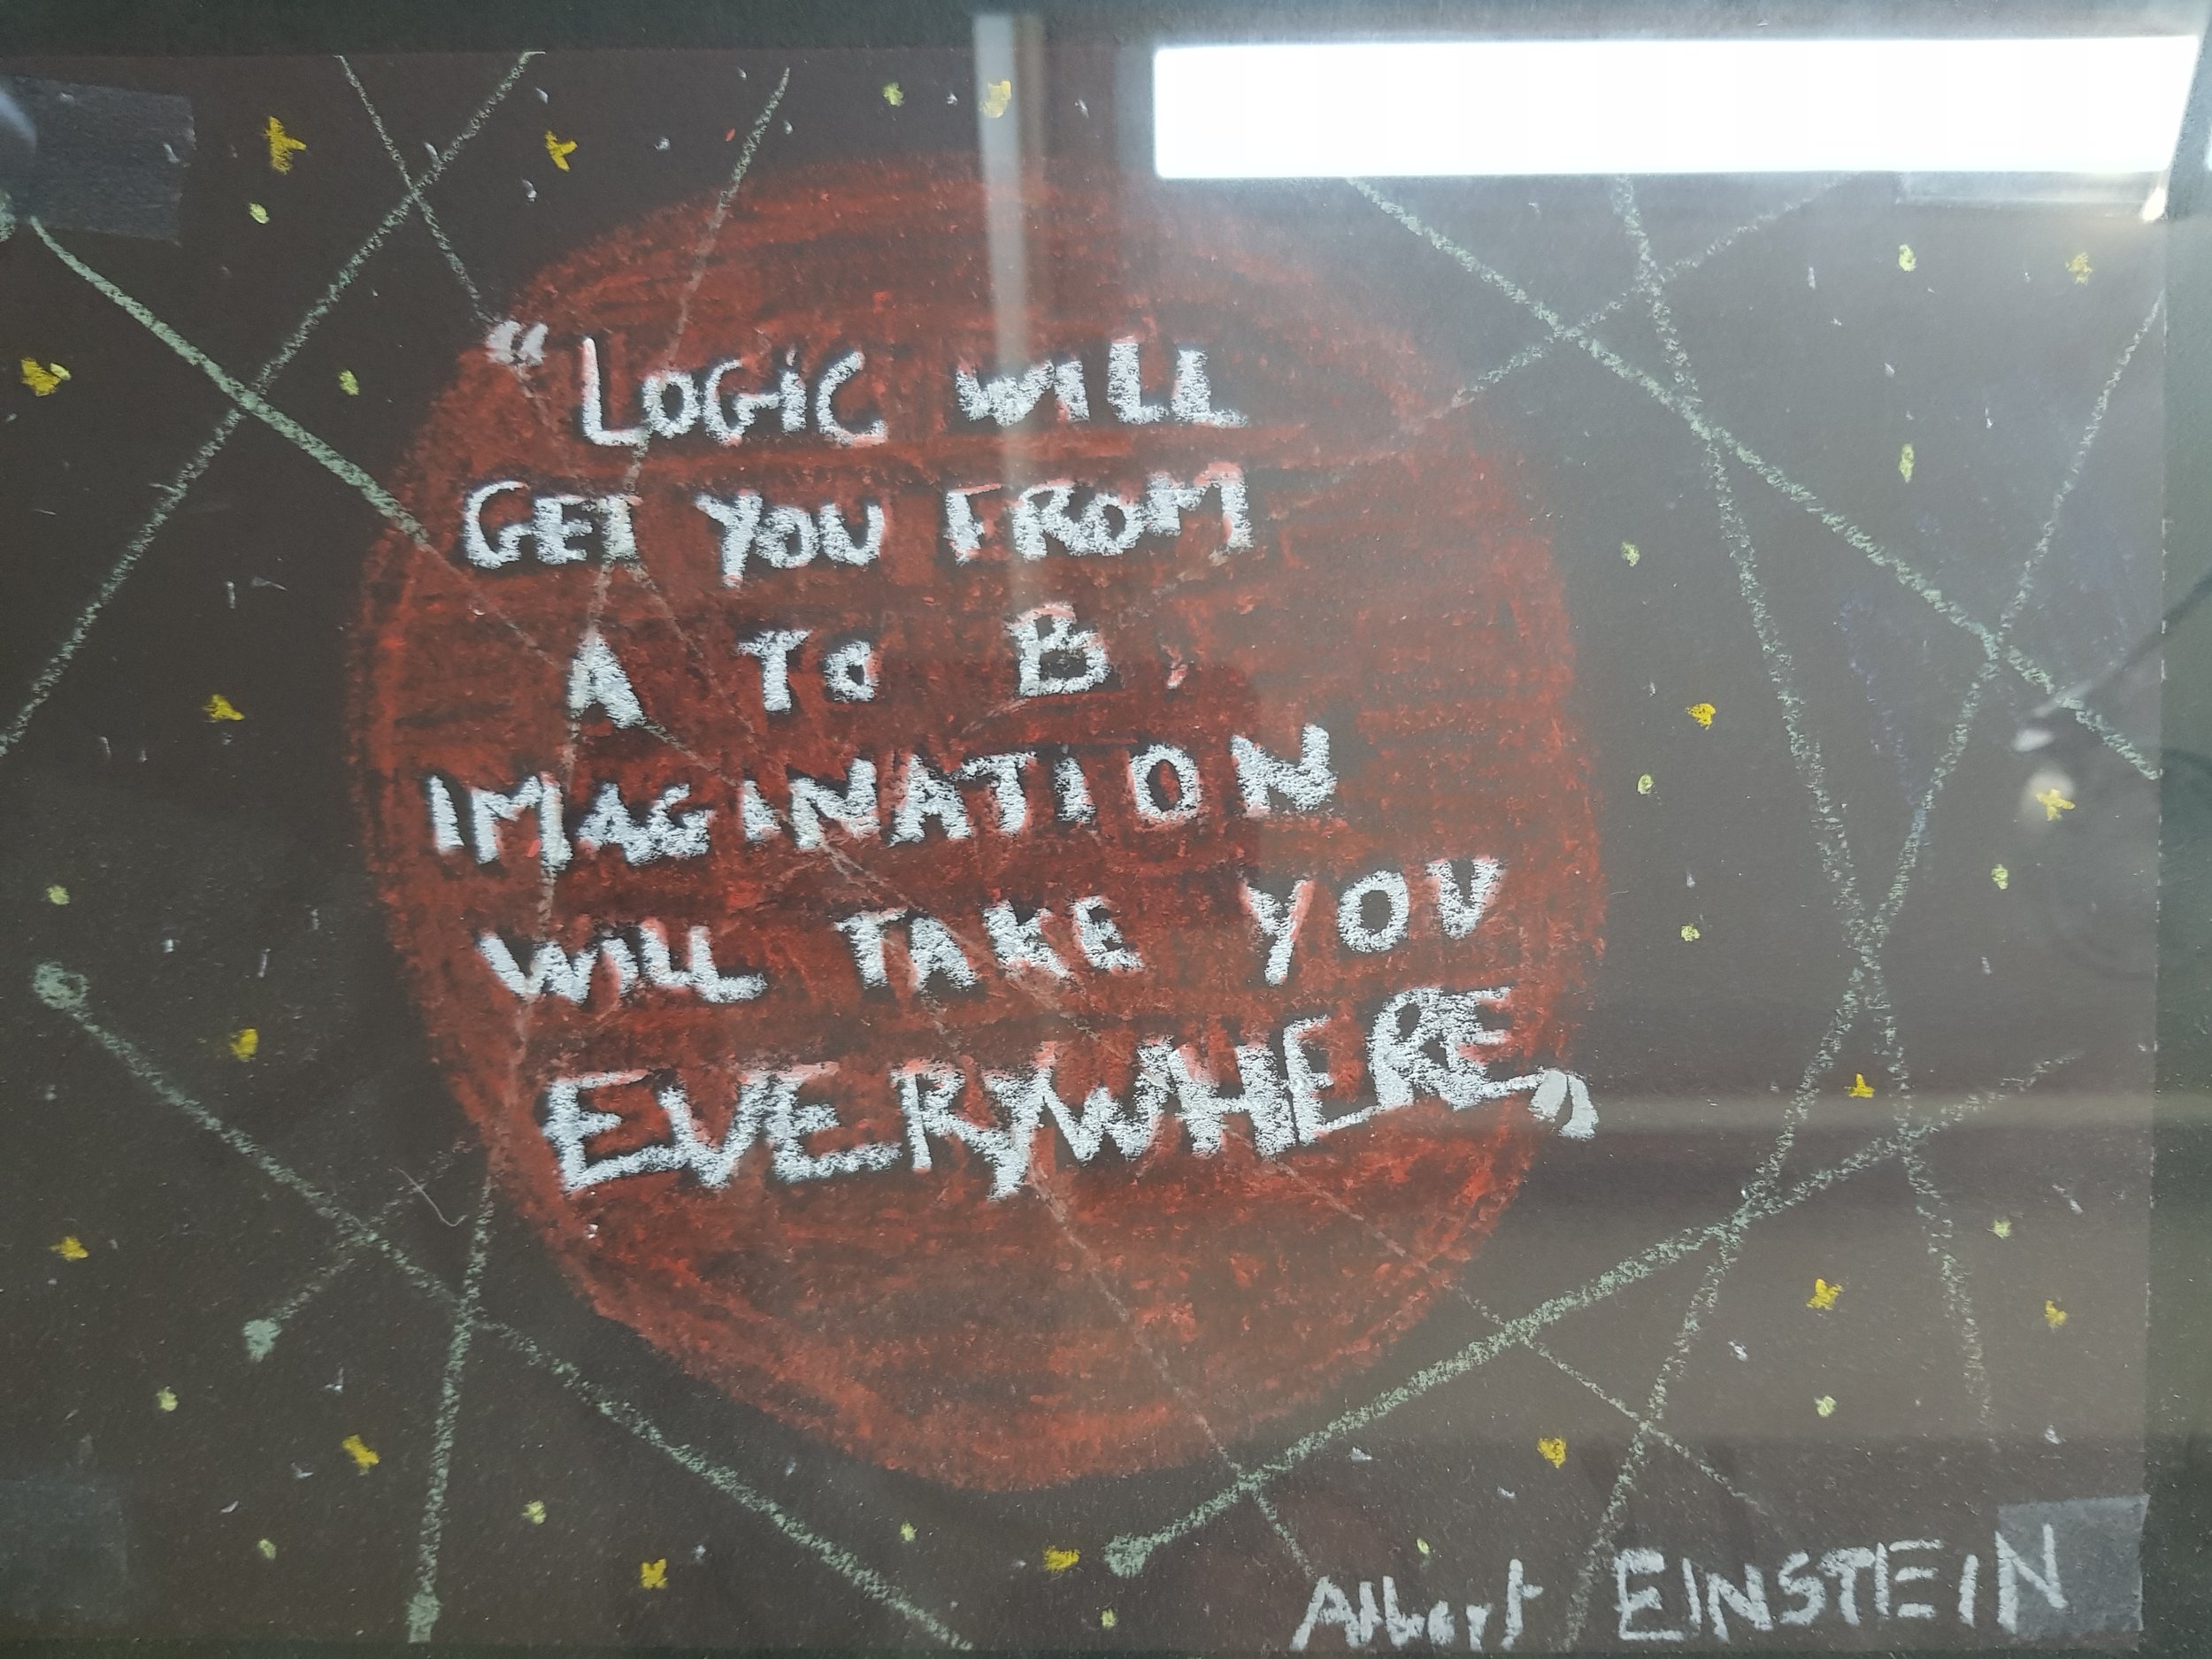 “LOGIC WILL
GET YOU FROM
A TO B,
IMAGINATION
WILL TAKE YOU
EVERYWHERE”
Albert EINSTEIN